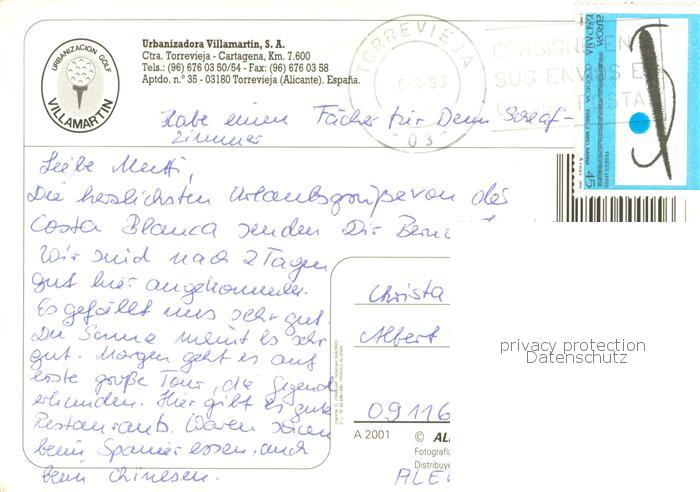 URBANIZACION GOLF
VILLAMARTIN
Urbanizadora Villamartín, S. A.
Ctra. Torrevieja - Cartagena, Km. 7.600
Tels.: (96) 676 03 50/54 - Fax: (96) 676 03 58
Aptdo. n.° 35 - 03180 Torrevieja (Alicante). España.
TORREVIEJA
-03-
CONSIGNE EN
SUS ENVIOS E
POSTA
EUROPA
ESPAÑA
45
Habe einen Fächer für Denn Schlaf-
zimmer
Liebe Mutti,
Die herzlichsten Urlaubsgrüße von des
Costa Blanca senden Dir
Wir sind nach 2 Tagen
gut hier angekommen.
Es gefällt uns sehr gut.
Die Sonne meint es sehr
gut. Morgen geht es auf
erste große Tour, die Gegend
erkunden. Hier gibt es gute
Restaurants. Waren schon
beim Spanier essen, auch
beim Chinesen.
Christa
Albert
09116
A 2001
©
Fotografía
Distribuye
privacy protection
Datenschutz